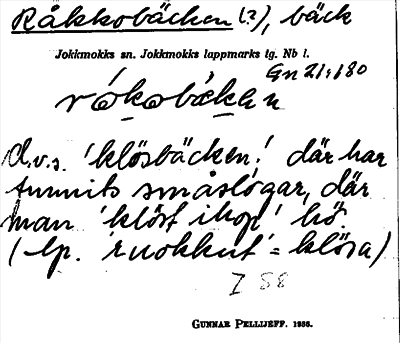 Råkkobäcken (?), bäck
Jokkmokks sn. Jokkmokks lappmarks tg. Nb l.
Gn 21:180
rókobäkan
d.v.s. 'klösbäcken!' där har
funnits småslógar, där
man 'klöst ihop' hö.
(lp. 'ruokkut' = klösa)
I 58
GUNNAR PELLIJEFF. 1956.